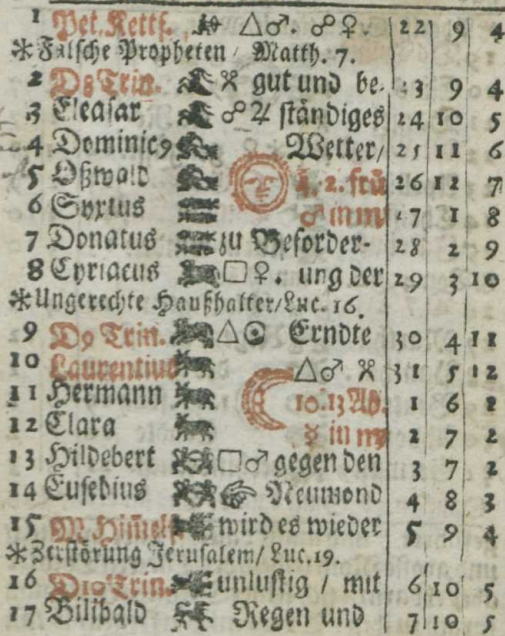 1 Pet. Kettf. △♂. ☍♀. 22 9 4
* Falsche Propheten / Matth. 7.
2 D8 Trin. gut und be- 23 9 4
3 Eleasar ☍♃ ständiges 24 10 5
4 Dominic9 Wetter / 25 11 6
5 Oßwald 4. 2. frü 26 12 7
6 Syxtus ♂ in ♍ 27 1 8
7 Donatus zu Beforder- 28 2 9
8 Cyriacus □♀. ung der 29 3 10
* Ungerechte Haußhalter / Luc. 16.
9 D9 Trin. △☉ Erndte 30 4 11
10 Laurentius △♂ 31 5 12
11 Hermann 10. 13 Ab. 1 6 1
12 Clara ☿ in ♍ 2 7 2
13 Hildebert □♂ gegen den 3 7 2
14 Eusebius ☞ Neumond 4 8 3
15 M. Him̃elf. wird es wieder 5 9 4
* Zerstörung Jerusalem / Luc. 19.
16 D10 Trin. unlustig / mit 6 10 5
17 Bilibald Regen und 7 10 5